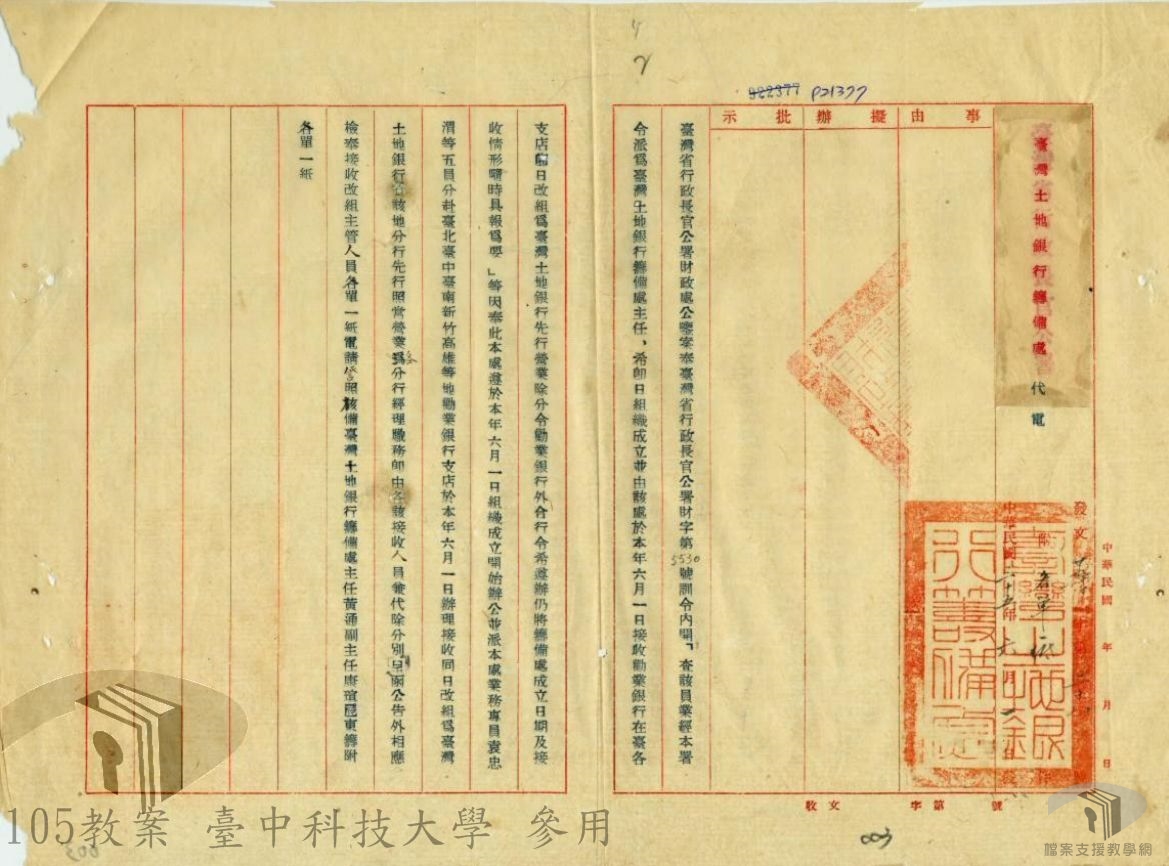 922377 P21377
臺灣土地銀行籌備處代電
事由擬辦批示
中華民國 年 月 日
發文
附 名單 紙
中華民國 年六月一日
臺灣土地銀行籌備處
臺灣省行政長官公署財政處公鑒案奉臺灣省行政長官公署財字第5530號訓令內開「查該員業經本署
令派爲臺灣土地銀行籌備處主任、希卽日組織成立並由該處於本年六月一日接收勸業銀行在臺各
支店卽日改組爲臺灣土地銀行先行營業除分令勸業銀行外合行令希遵辦仍將籌備處成立日期及接
收情形隨時具報爲要」等因奉此本處遵於本年六月一日組織成立開始辦公並派本處業務專員袁忠
渭等五員分赴臺北臺中臺南新竹高雄等地勸業銀行支店於本年六月一日辦理接收同日改組爲臺灣
土地銀行各該地分行先行照常營業 分行經理職務卽由各該接收人員兼代除分別 公告外相應
檢奉接收改組主管人員名單一紙電請 照核備臺灣土地銀行籌備處主任黃通副主任唐瑄 東籌附
名單一紙
收文 字第 號
003
003
105教案 臺中科技大學 參用
檔案支援教學網